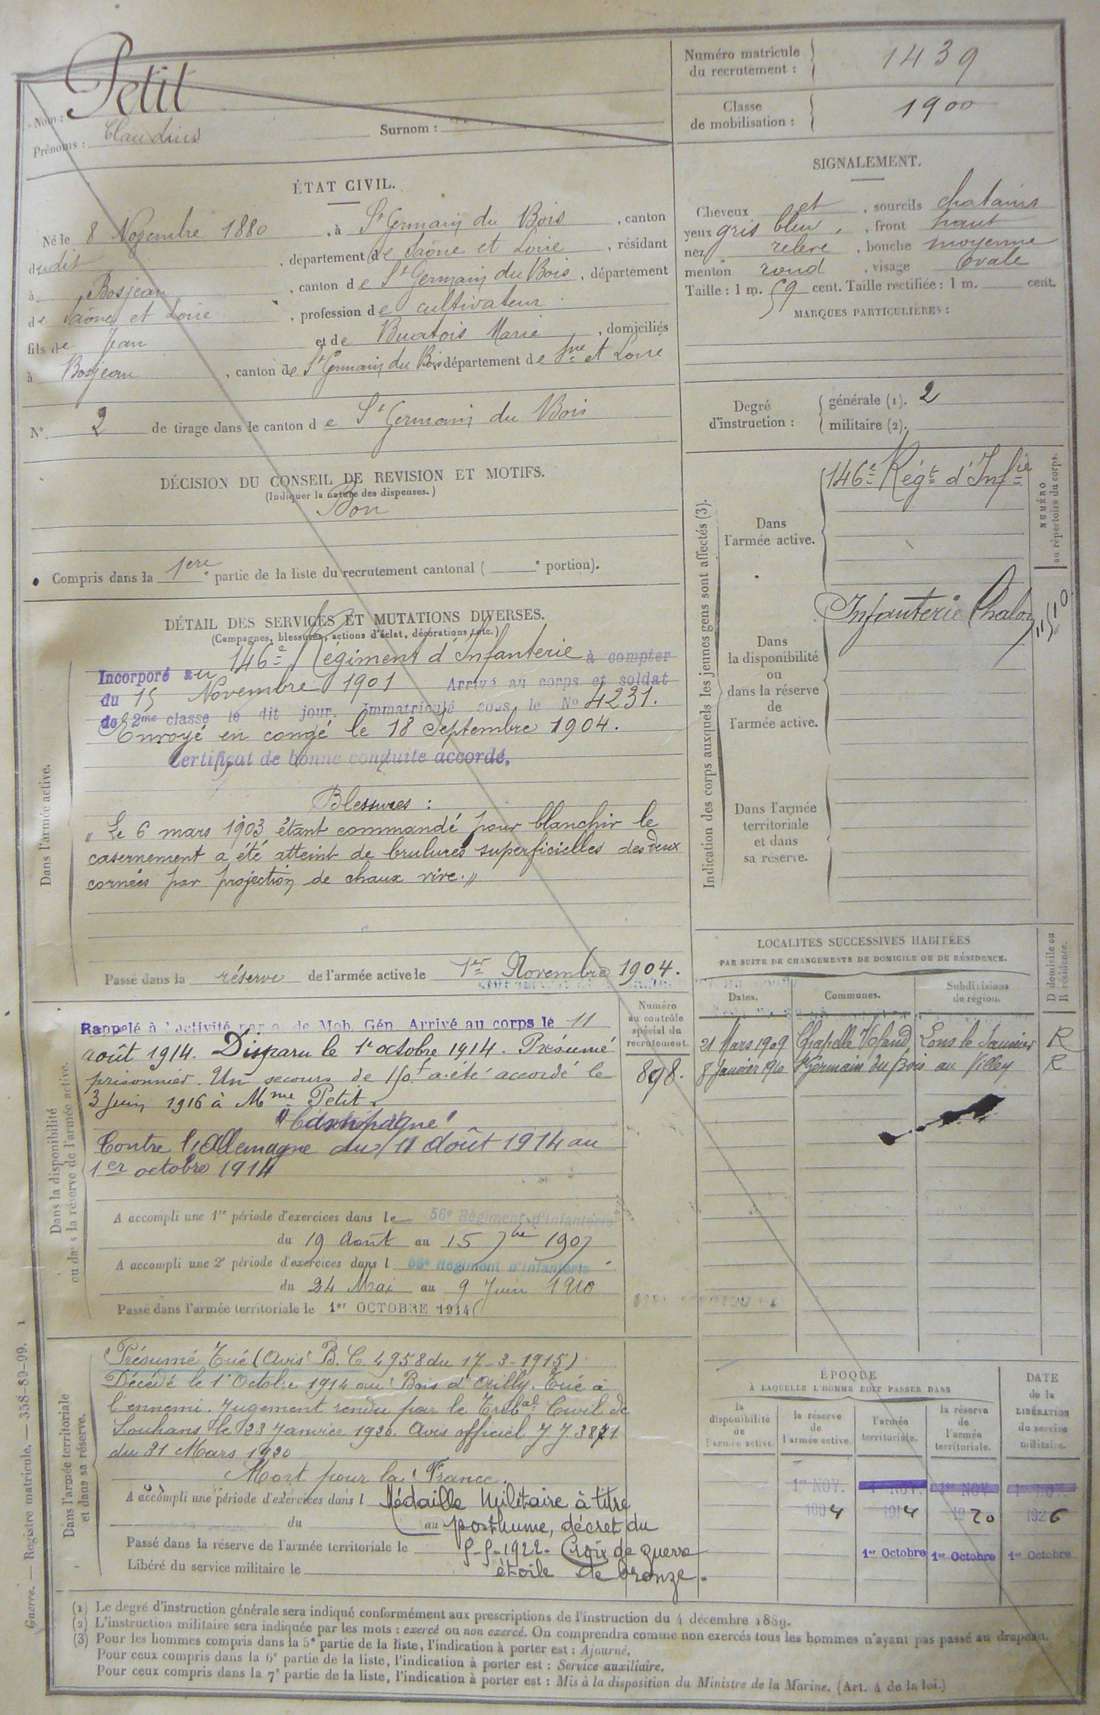 Nom : Petit
Prénoms : Claudius Surnom :
Numéro matricule du recrutement : 1439
Classe de mobilisation : 1900
ÉTAT CIVIL.
Né le 8 Novembre 1880, à St Germain du Bois, canton
dudit, département de Saône et Loire, résidant
à Bosjean, canton de St Germain du Bois, département
de Saône et Loire, profession de cultivateur
fils de Jean et de Buatois Marie, domiciliés
à Bosjean, canton de St Germain du Bois, département de Sne et Loire
N° 2 de tirage dans le canton de St Germain du Bois
SIGNALEMENT.
Cheveux et, sourcils chatains
yeux gris bleu, front haut
nez relevé, bouche moyenne
menton rond, visage Ovale
Taille : 1 m. 59 cent. Taille rectifiée : 1 m. cent.
MARQUES PARTICULIÈRES :
Degré d'instruction :
générale (1). 2
militaire (2).
DÉCISION DU CONSEIL DE REVISION ET MOTIFS.
(Indiquer la nature des dispenses.)
Bon
Compris dans la 1ere partie de la liste du recrutement cantonal ( e portion).
DÉTAIL DES SERVICES ET MUTATIONS DIVERSES.
(Campagnes, blessures, actions d'éclat, décorations, etc.)
Dans l'armée active.
Incorporé au 146e Régiment d'Infanterie à compter
du 15 Novembre 1901 Arrivé au corps et soldat
de 2me classe le dit jour, immatriculé sous le No 4231.
Envoyé en congé le 18 Septembre 1904.
Certificat de bonne conduite accordé.
Blessures :
" Le 6 mars 1903 étant commandé pour blanchir le
casernement a été atteint de brulures superficielles des deux
cornées par projection de chaux vive. "
Passé dans la réserve de l'armée active le 1er Novembre 1904.
Indication des corps auxquels les jeunes gens sont affectés (3).
NUMÉRO au répertoire du corps.
Dans l'armée active.
146e Régt d'Infie
Dans la disponibilité ou dans la réserve de l'armée active.
Infanterie Chalon
Dans l'armée territoriale et dans sa réserve.
Dans la disponibilité ou dans la réserve de l'armée active.
Rappelé à l'activité Mob. Gén. Arrivé au corps le 11
août 1914. Disparu le 1r octobre 1914. Présumé
prisonnier. Un secours de a été accordé le
3 Juin 1916 à Mme Petit.
"Campagne"
Contre l'Allemagne du 11 Août 1914 au
1er octobre 1914
A accompli une 1re période d'exercices dans le 56e Régiment d'Infanterie
du 19 Août au 15 7bre 1907
A accompli une 2e période d'exercices dans l 56e Régiment d'Infanterie
du 24 Mai au 9 Juin 1910
Passé dans l'armée territoriale le 1er OCTOBRE 1914
Numéro au contrôle spécial du recrutement.
898.
LOCALITÉS SUCCESSIVES HABITÉES
PAR SUITE DE CHANGEMENTS DE DOMICILE OU DE RÉSIDENCE.
Dates. Communes. Subdivisions de région. D domicile ou R résidence.
21 Mars 1909 Chapelle Voland Lons le Saunier R
8 Janvier 1910 St Germain du Bois au Villey R
Dans l'armée territoriale et dans sa réserve.
Présumé Tué (Avis B. C. 4958 du 17-3-1915)
Décédé le 1r Octobre 1914 au Bois d'Ailly. Tué à
l'ennemi. Jugement rendu par le Trbal Civil de
Louhans le 23 Janvier 1920. Avis officiel J J 3871
du 31 Mars 1920
Mort pour la France.
A accompli une période d'exercices dans l
du au
Médaille Militaire à titre
posthume, décret du
Passé dans la réserve de l'armée territoriale le
5-5-1922. Croix de guerre
Libéré du service militaire le
étoile de bronze.
ÉPOQUE
À LAQUELLE L'HOMME DOIT PASSER DANS
la disponibilité de l'armée active.
la réserve de l'armée active.
l'armée territoriale.
la réserve de l'armée territoriale.
DATE de la LIBÉRATION du service militaire.
1er NOV. 1er NOV. 1er NOV.
1904 1914 1920 1926
1er Octobre 1er Octobre 1er Octobre
Guerre. — Registre matricule. — 358-89-99. 1
(1) Le degré d'instruction générale sera indiqué conformément aux prescriptions de l'instruction du 4 décembre 1889.
(2) L'instruction militaire sera indiquée par les mots : exercé ou non exercé. On comprendra comme non exercés tous les hommes n'ayant pas passé au drapeau.
(3) Pour les hommes compris dans la 5e partie de la liste, l'indication à porter est : Ajourné.
Pour ceux compris dans la 6e partie de la liste, l'indication à porter est : Service auxiliaire.
Pour ceux compris dans la 7e partie de la liste, l'indication à porter est : Mis à la disposition du Ministre de la Marine. (Art. 4 de la loi.)